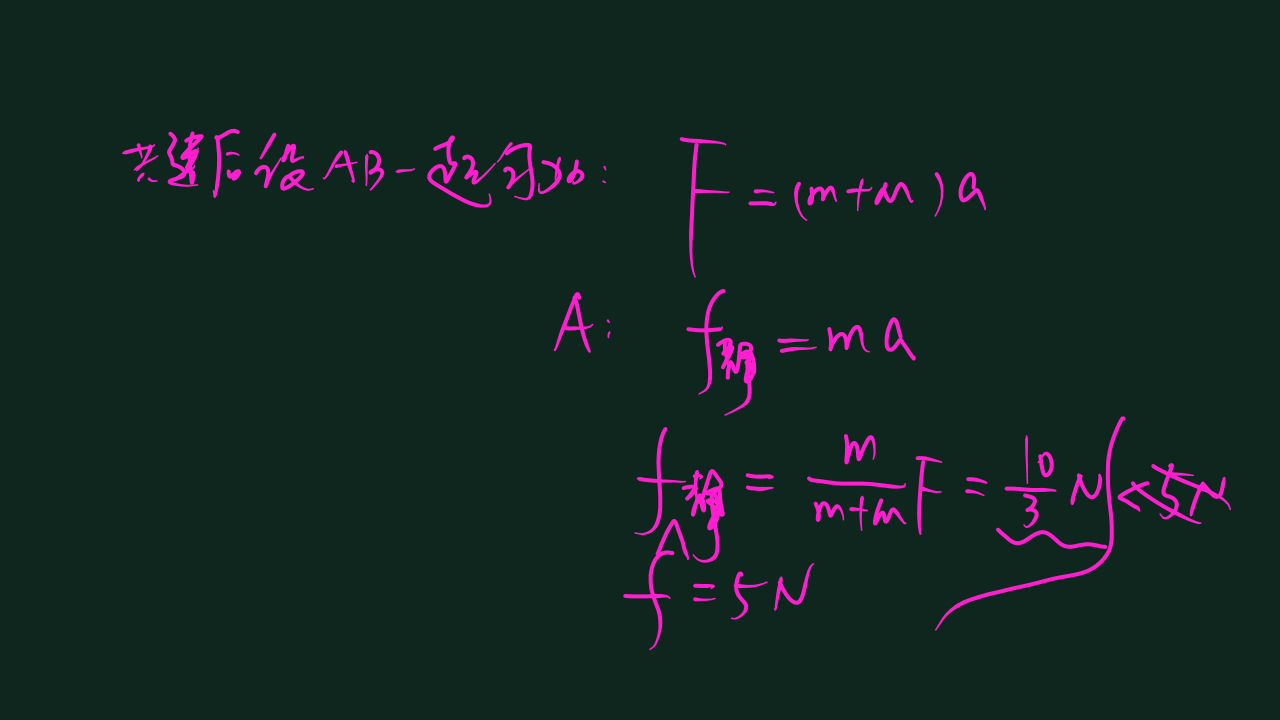 共速后设AB一起匀加: F=(m+M)a
A: f静=ma
f静=\frac{m}{m+M}F=\frac{10}{3}N <5N
∧
f=5N